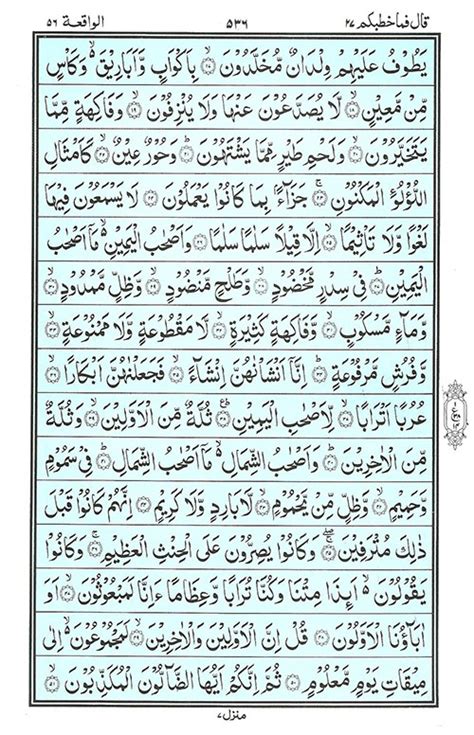 قال فما خطبكم ٢٧ ٥٣٦ الواقعة ٥٦
يَطُوْفُ عَلَيْهِمْ وِلْدَانٌ مُّخَلَّدُوْنَ ۝١٧ بِاَكْوَابٍ وَّاَبَارِيْقَ ۙ وَكَاْسٍ
مِّنْ مَّعِيْنٍ ۝١٨ لَّا يُصَدَّعُوْنَ عَنْهَا وَلَا يُنْزِفُوْنَ ۝١٩ وَفَاكِهَةٍ مِّمَّا
يَتَخَيَّرُوْنَ ۝٢٠ وَلَحْمِ طَيْرٍ مِّمَّا يَشْتَهُوْنَ ۝٢١ وَحُوْرٌ عِيْنٌ ۝٢٢ كَاَمْثَالِ
اللُّؤْلُؤِ الْمَكْنُوْنِ ۝٢٣ جَزَآءًۢ بِمَا كَانُوْا يَعْمَلُوْنَ ۝٢٤ لَا يَسْمَعُوْنَ فِيْهَا
لَغْوًا وَّلَا تَاْثِيْمًا ۝٢٥ اِلَّا قِيْلًا سَلٰمًا سَلٰمًا ۝٢٦ وَاَصْحٰبُ الْيَمِيْنِ ۙ مَاۤ اَصْحٰبُ
الْيَمِيْنِ ۝٢٧ فِيْ سِدْرٍ مَّخْضُوْدٍ ۝٢٨ وَّطَلْحٍ مَّنْضُوْدٍ ۝٢٩ وَّظِلٍّ مَّمْدُوْدٍ ۝٣٠
وَّمَآءٍ مَّسْكُوْبٍ ۝٣١ وَّفَاكِهَةٍ كَثِيْرَةٍ ۝٣٢ لَّا مَقْطُوْعَةٍ وَّلَا مَمْنُوْعَةٍ ۝٣٣
وَّفُرُشٍ مَّرْفُوْعَةٍ ۝٣٤ اِنَّاۤ اَنْشَاْنٰهُنَّ اِنْشَآءً ۝٣٥ فَجَعَلْنٰهُنَّ اَبْكَارًا ۝٣٦
عُرُبًا اَتْرَابًا ۝٣٧ لِّاَصْحٰبِ الْيَمِيْنِ ۝٣٨ ثُلَّةٌ مِّنَ الْاَوَّلِيْنَ ۝٣٩ وَثُلَّةٌ
مِّنَ الْاٰخِرِيْنَ ۝٤٠ وَاَصْحٰبُ الشِّمَالِ ۙ مَاۤ اَصْحٰبُ الشِّمَالِ ۝٤١ فِيْ سَمُوْمٍ
وَّحَمِيْمٍ ۝٤٢ وَّظِلٍّ مِّنْ يَّحْمُوْمٍ ۝٤٣ لَّا بَارِدٍ وَّلَا كَرِيْمٍ ۝٤٤ اِنَّهُمْ كَانُوْا قَبْلَ
ذٰلِكَ مُتْرَفِيْنَ ۝٤٥ وَكَانُوْا يُصِرُّوْنَ عَلَى الْحِنْثِ الْعَظِيْمِ ۝٤٦ وَكَانُوْا
يَقُوْلُوْنَ ۙ اَىِٕذَا مِتْنَا وَكُنَّا تُرَابًا وَّعِظَامًا ءَاِنَّا لَمَبْعُوْثُوْنَ ۝٤٧ اَوَ
اٰبَآؤُنَا الْاَوَّلُوْنَ ۝٤٨ قُلْ اِنَّ الْاَوَّلِيْنَ وَالْاٰخِرِيْنَ ۝٤٩ لَمَجْمُوْعُوْنَ ۙ اِلٰى
مِيْقَاتِ يَوْمٍ مَّعْلُوْمٍ ۝٥٠ ثُمَّ اِنَّكُمْ اَيُّهَا الضَّآلُّوْنَ الْمُكَذِّبُوْنَ ۝٥١
منزل ٧